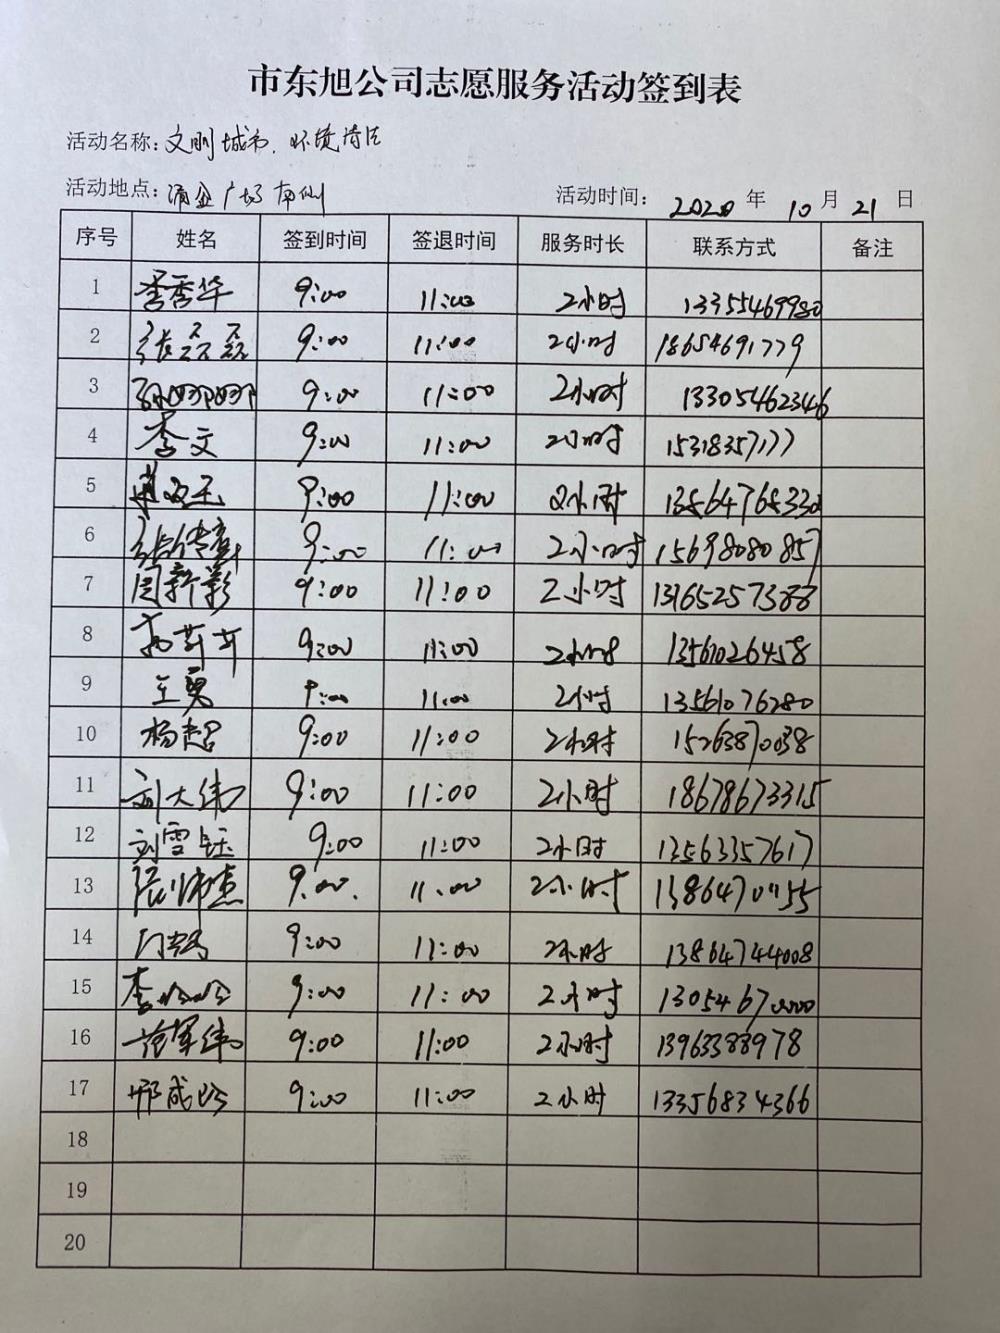 市东旭公司志愿服务活动签到表
活动名称: 文明城市、环境清洁
活动地点: 涌金广场南侧 活动时间: 2020 年 10 月 21 日
序号 姓名 签到时间 签退时间 服务时长 联系方式 备注
1 李秀华 9:00 11:00 2小时 13355469980
2 张磊磊 9:00 11:00 2小时 18654691779
3 孙娜娜 9:00 11:00 2小时 13305462346
4 李文 9:00 11:00 2小时 15318357177
5 9:00 11:00 2小时 13564765330
6 9:00 11:00 2小时 15698080857
7 周新影 9:00 11:00 2小时 13165257588
8 9:00 11:00 2小时 13561026458
9 王勇 9:00 11:00 2小时 13561076280
10 杨超 9:00 11:00 2小时 15263870038
11 刘大伟 9:00 11:00 2小时 18678673315
12 刘雪钰 9:00 11:00 2小时 13563357617
13 9:00 11:00 2小时
14 9:00 11:00 2小时 13864744008
15 李哈哈 9:00 11:00 2小时
16 范军伟 9:00 11:00 2小时 13963388978
17 邢成玲 9:00 11:00 2小时 13356834366
18
19
20